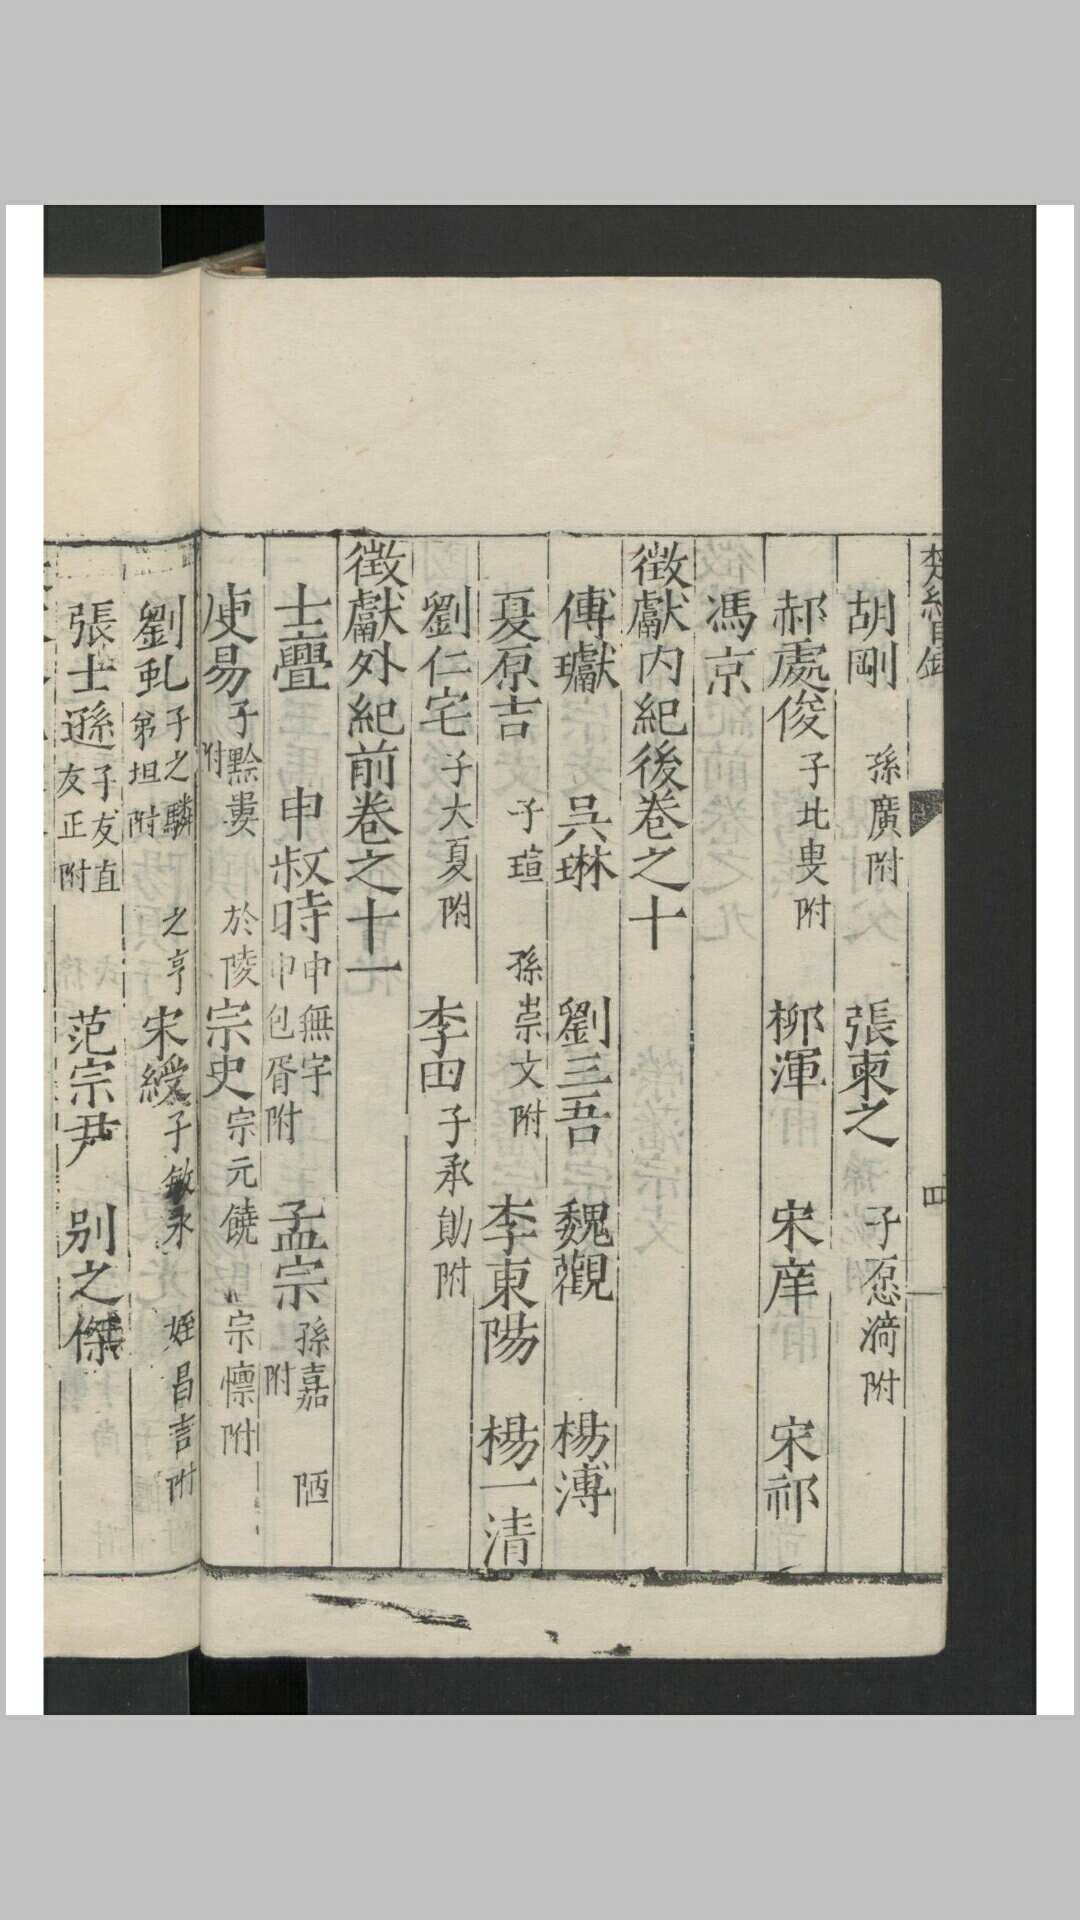 楚紀目錄 四
胡剛 孫廣附 張柬之 子愿漪附
郝處俊 子北叟附 柳渾 宋庠 宋祁
馮京
徵獻内紀後卷之十
傅瓛 吳琳 劉三吾 魏觀 楊溥
夏原吉 子瑄 孫崇文附 李東陽 楊一清
劉仁宅 子大夏附 李田 子承勛附
徵獻外紀前卷之十一
士亹 申叔時 申無宇 申包胥附 孟宗 孫嘉 陋 附
庾易 子黔婁 於陵 附 宗史 宗元饒 宗懍附
劉虬 子之驎 之亨 弟坦附 宋綬 子敏求 姪昌言附
張士遜 子友直 友正附 范宗尹 别之傑